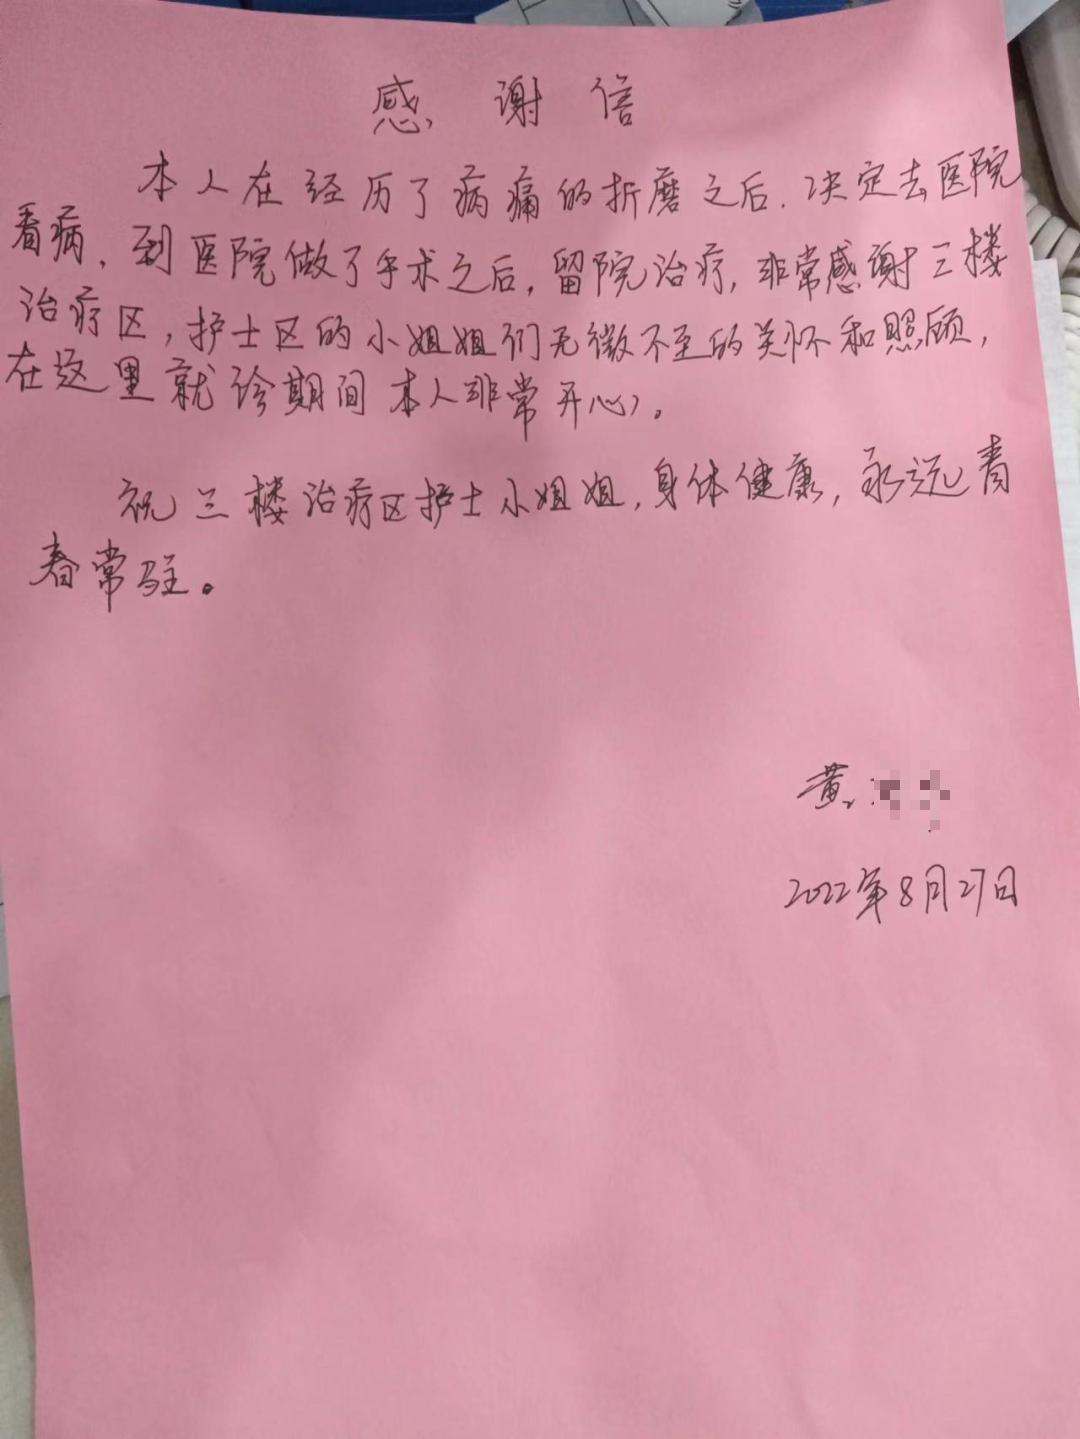 感谢信
本人在经历了病痛的折磨之后.决定去医院
看病,到医院做了手术之后,留院治疗,非常感谢三楼
治疗区,护士区的小姐姐们无微不至的关怀和照顾,
在这里就诊期间本人非常开心。
祝三楼治疗区护士小姐姐,身体健康,永远青
春常驻。
黄
2022年8月27日